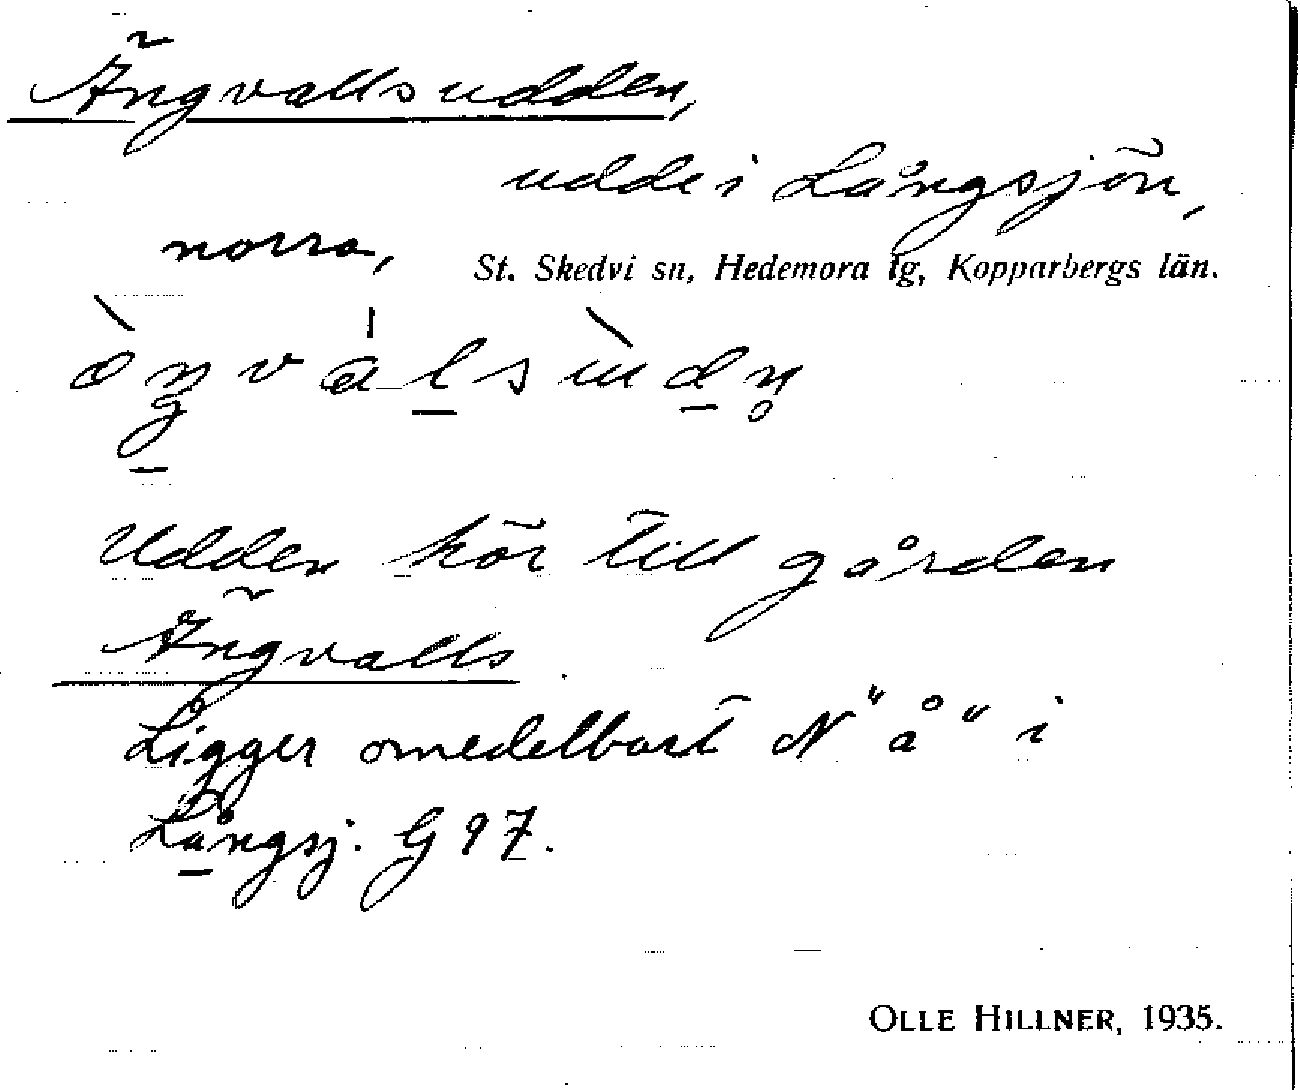 Ängvallsudden,
udde i Långsjön,
norra,
St. Skedvi sn, Hedemora tg, Kopparbergs län.
Udden hör till gården
Ängvalls.
Ligger omedelbart N "å" i
Långsj. G 97.
OLLE HILLNER, 1935.